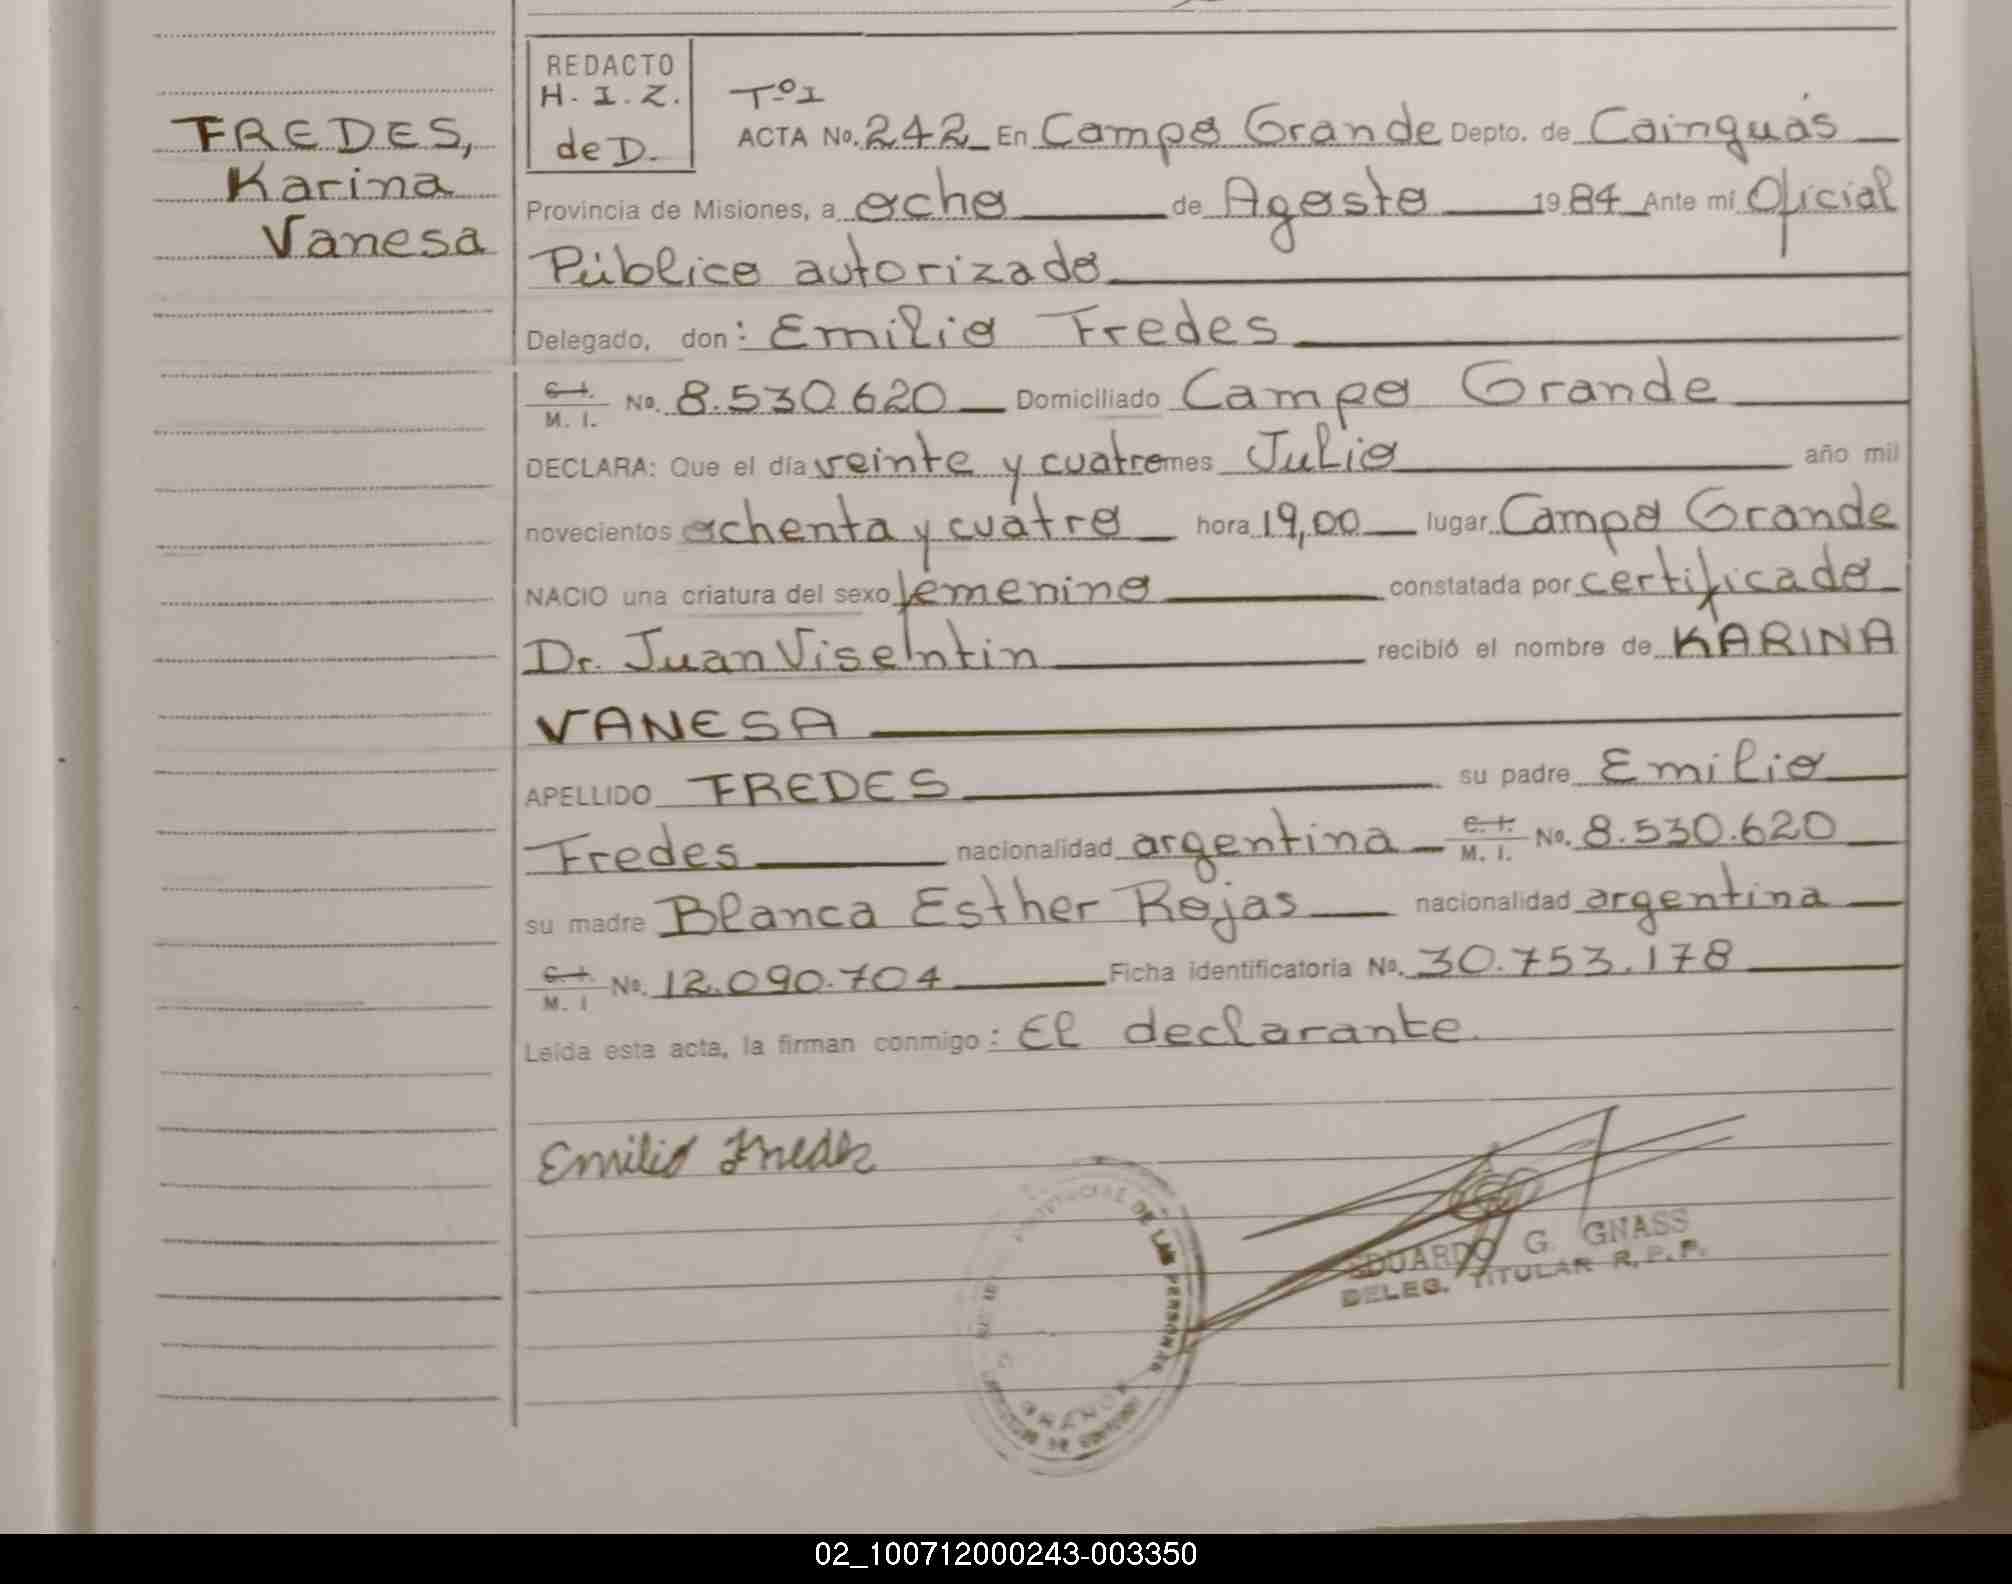 FREDES,
Karina
Vanesa
REDACTO
H. I. Z.
de D.
Tº I
ACTA No. 242 En Campo Grande Depto. de Cainguás
Provincia de Misiones, a ocho de Agosto 1984 Ante mí Oficial
Público autorizado
Delegado, don: Emilio Fredes
C. I. M. I. No. 8.530.620 Domiciliado Campo Grande
DECLARA: Que el día veinte y cuatro mes Julio año mil
novecientos ochenta y cuatro hora 19,00 lugar Campo Grande
NACIO una criatura del sexo femenino constatada por certificado
Dr. Juan Viselntin recibió el nombre de KARINA
VANESA
APELLIDO FREDES su padre Emilio
Fredes nacionalidad argentina C. I. M. I. No. 8.530.620
su madre Blanca Esther Rojas nacionalidad argentina
C. I. M. I No. 12.090.704 Ficha identificatoria No. 30.753.178
Leída esta acta, la firman conmigo: El declarante.
Emilio Fredes
PROVINCIAL DE LAS PERSONAS
EDUARDO G. GNASS
DELEG. TITULAR R. P. P.
02_100712000243-003350